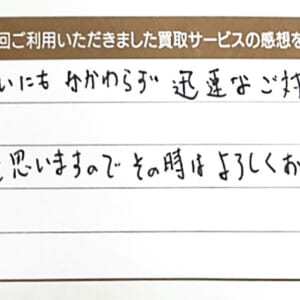 回ご利用いただきました買取サービスの感想を
いにもかかわらず 迅速なご対
と思いますので その時は よろしくお